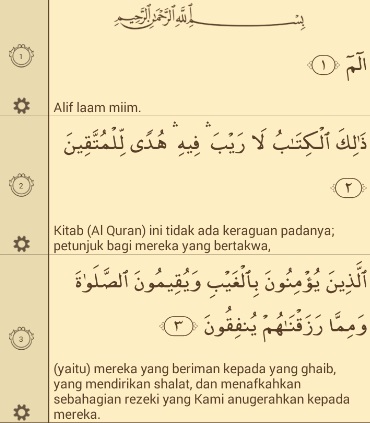 بِسْمِ ٱللَّهِ ٱلرَّحْمَٰنِ ٱلرَّحِيمِ
1
الٓمٓ ١
Alif laam miim.
2
ذَٰلِكَ ٱلْكِتَٰبُ لَا رَيْبَ ۛ فِيهِ ۛ هُدًى لِّلْمُتَّقِينَ
٢
Kitab (Al Quran) ini tidak ada keraguan padanya;
petunjuk bagi mereka yang bertakwa,
3
ٱلَّذِينَ يُؤْمِنُونَ بِٱلْغَيْبِ وَيُقِيمُونَ ٱلصَّلَوٰةَ
وَمِمَّا رَزَقْنَٰهُمْ يُنفِقُونَ ٣
(yaitu) mereka yang beriman kepada yang ghaib,
yang mendirikan shalat, dan menafkahkan
sebahagian rezeki yang Kami anugerahkan kepada
mereka.